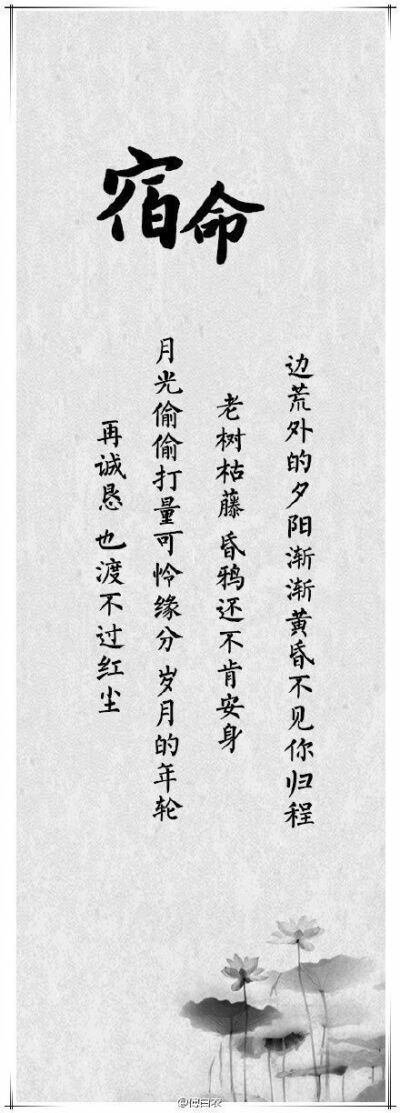 宿命
边荒外的夕阳渐渐黄昏不见你归程
老树枯藤 昏鸦还不肯安身
月光偷偷打量可怜缘分 岁月的年轮
再诚恳 也渡不过红尘